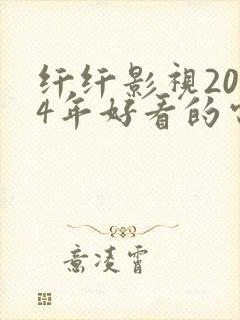 纤纤影視20
4年好看的
意凌霄